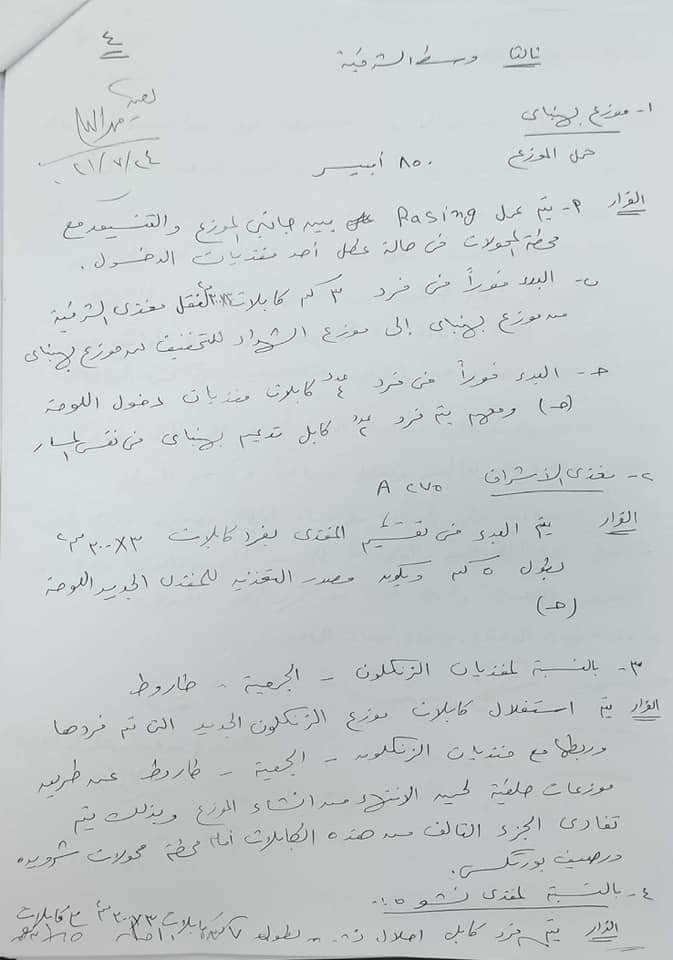 ٤
ثالثا وسط الشرقية
٢١/٧/٢٤
١- موزع بهنباى
حمل الموزع ٨٥٠ أمبير
القرار ٢- يتم عمل Rasing بين جانبى الموزع والتنسيق مع
محطة المحولات فى حالة عطل أحد مغذيات الدخول.
ب- البدء فوراً فى فرد ٣ كم كابلات لنقل مغذى الشرقية
من موزع بهنباى إلى موزع الشهداء للتخفيف من موزع بهنباى
حـ- البدء فوراً فى فرد عدد ٤ كابلات مغذيات دخول اللوحة
(حـ) ومعهم يتم فرد عدد ٢ كابل تدعيم بهنباى فى نفس المسار
٢- مغذى الأشراف ٢٧٥ A
القرار يتم البدء فى تقسيم المغذى بفرد كابلات ٣٠٠x٣ مم٢
بطول ٥ كم ويكون مصدر التغذية للمغذى الجديد اللوحة
(حـ)
٣- بالنسبة لمغذيات الزنكلون - الجمعية - طاروط
القرار يتم استغلال كابلات موزع الزنكلون الجديد التى تم فردها
وربطها مع مغذيات الزنكلون - الجمعية - طاروط عن طريق
موزعات حلقية لحين الانتهاء من انشاء الموزع وبذلك يتم
تفادى الجزء التالف من هذه الكابلات أمام محطة محولات شرويده
ورصيف بورتكس.
٤- بالنسبة لمغذى نشوه
القرار يتم فرد كابل احلال بطول ٧ كم كابلات ٣٠٠x٣ مم٢